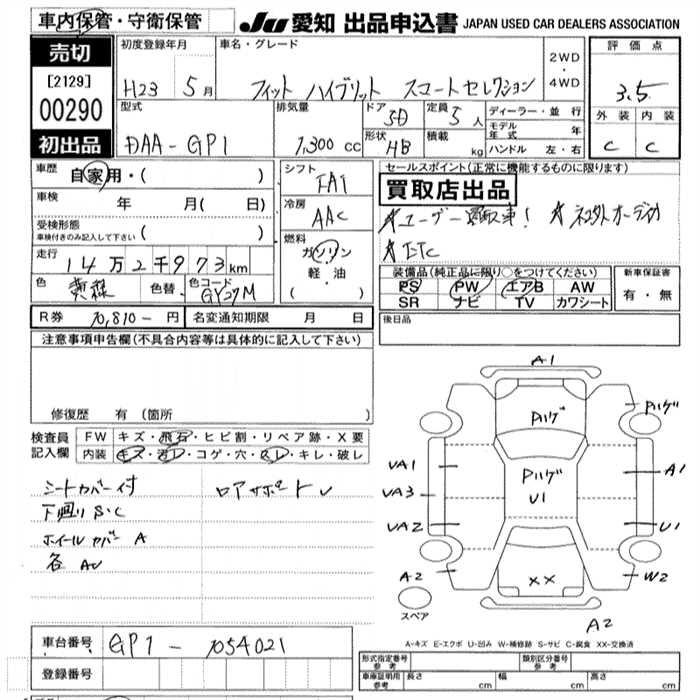 車内保管・守衛保管
JU 愛知 出品申込書 JAPAN USED CAR DEALERS ASSOCIATION
売切
[2129]
00290
初出品
初度登録年月
H23 5月
車名・グレード
フィット ハイブリット スマートセレクション
2WD
・
4WD
評価点
3.5
外装 内装
C C
型式
DAA-GP1
排気量
1,300 CC
ドア
5D
定員
5人
形状
HB
積載
kg
ディーラー・並行
モデル年式 年
ハンドル 左・右
車歴
自家用・( )
車検
年 月( 日)
受検形態
車検付きのみ記入して下さい ( )
走行
14万2千973km
色
色替
色コード
GY27M
シフト
FAT
冷房
AAC
燃料
ガソリン
軽油
・
( )
セールスポイント(正常に機能するものに限ります)
買取店出品
☆ユーザー買取車! ☆ネット外オーディオ
☆ETC
装備品(純正品に限り○をつけてください)
PS PW エアB AW
SR ナビ TV カワシート
新車保証書
有・無
R券 10,810-円
名変通知期限 月 日
後日品
注意事項申告欄(不具合内容等は具体的に記入して下さい)
修復歴 有(箇所 )
検査員記入欄
FW キズ・飛石・ヒビ割・リペア跡・X要
内装 キズ・汚レ・コゲ・穴・スレ・キレ・破レ
シートカバー付 ロアサポートU
下廻りS・C
ホイールカバーA
各AU
A1
Pハゲ
Pハゲ
VA1
Pハゲ
U1
A1
VA3
VA2
U1
A2
XX
W2
スペア
A2
A-キズ E-エクボ U-凹み W-補修跡 S-サビ C-腐食 XX-交換済
車台番号 GP1-1054021
登録番号
形式指定番号
参考
類別区分番号
参考
車庫証明用
参考
長さ cm 幅 cm 高さ cm